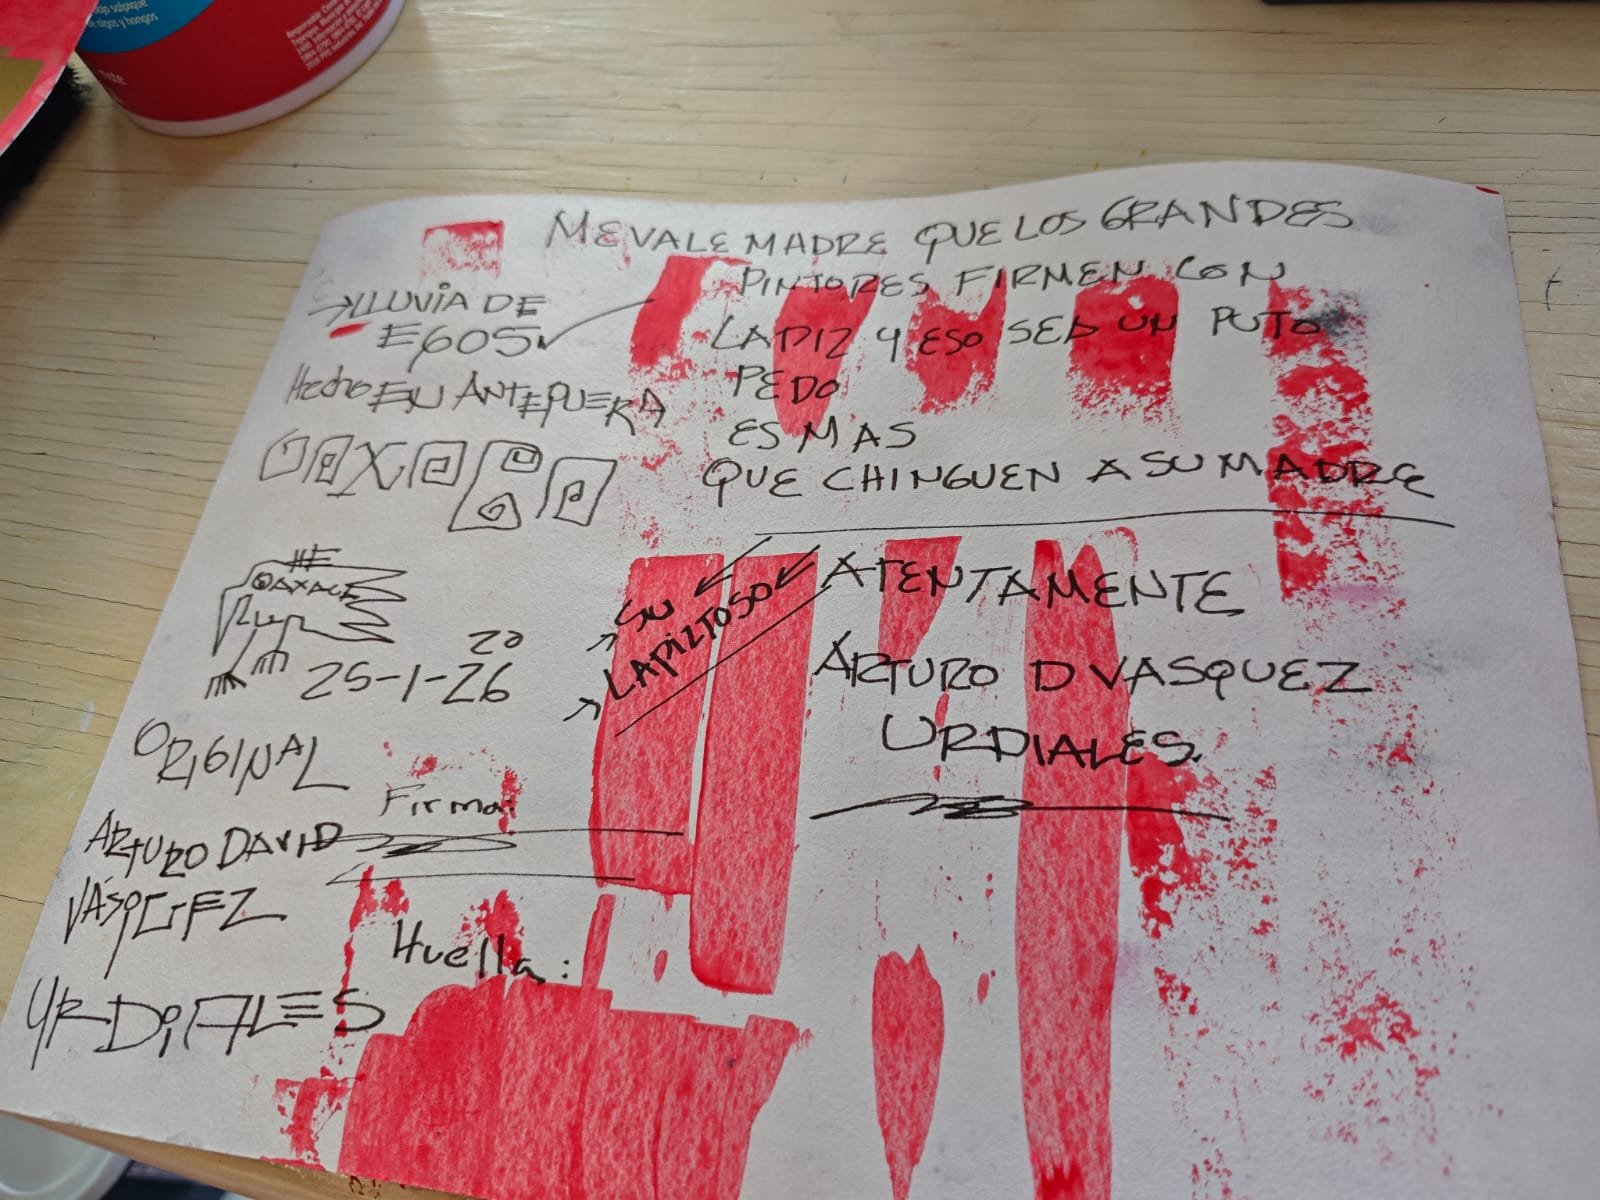 bajo salpique
de algas y hongos
MEVALE MADRE QUE LOS GRANDES
PINTORES FIRMEN CON
LAPIZ Y ESO SEA UN PUTO
PEDO
ES MAS
QUE CHINGUEN A SU MADRE
→LLUVIA DE
EGOS
Hecho EN ANTEQUERA
OAXACA
HE
OAXACA
20
25-1-26
ORIGINAL
ARTURO DAVID
VÁSQUEZ
URDIALES
Firma:
Huella:
SU
LAPIZTOSO
ATENTAMENTE
ARTURO D VASQUEZ
URDIALES.